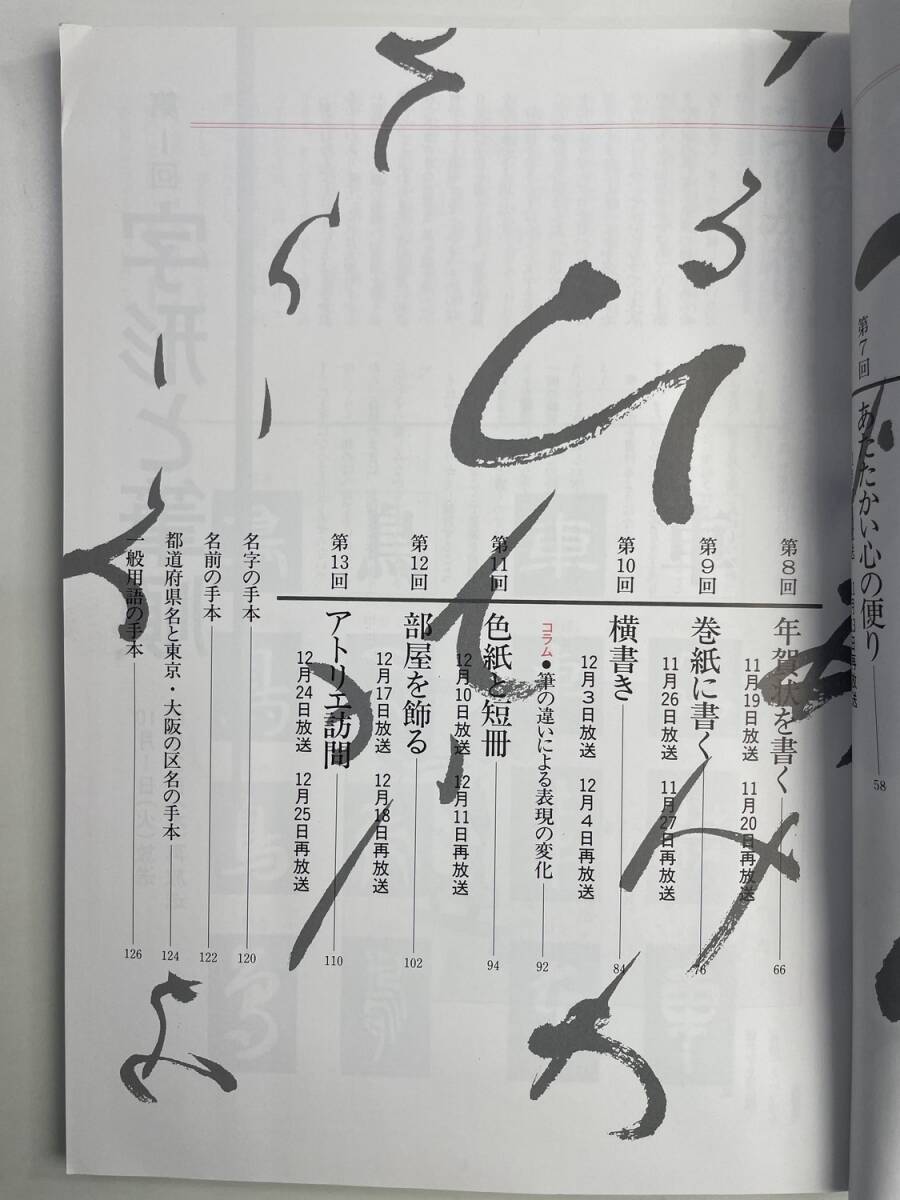 第7回
あたたかい心の便り
58
第8回
年賀状を書く
11月19日放送 11月20日再放送
66
第9回
巻紙に書く
11月26日放送 11月27日再放送
76
第10回
横書き
12月3日放送 12月4日再放送
84
コラム●筆の違いによる表現の変化
92
第11回
色紙と短冊
12月10日放送 12月11日再放送
94
第12回
部屋を飾る
12月17日放送 12月18日再放送
102
第13回
アトリエ訪問
12月24日放送 12月25日再放送
110
名字の手本
120
名前の手本
122
都道府県名と東京・大阪の区名の手本
124
一般用語の手本
126